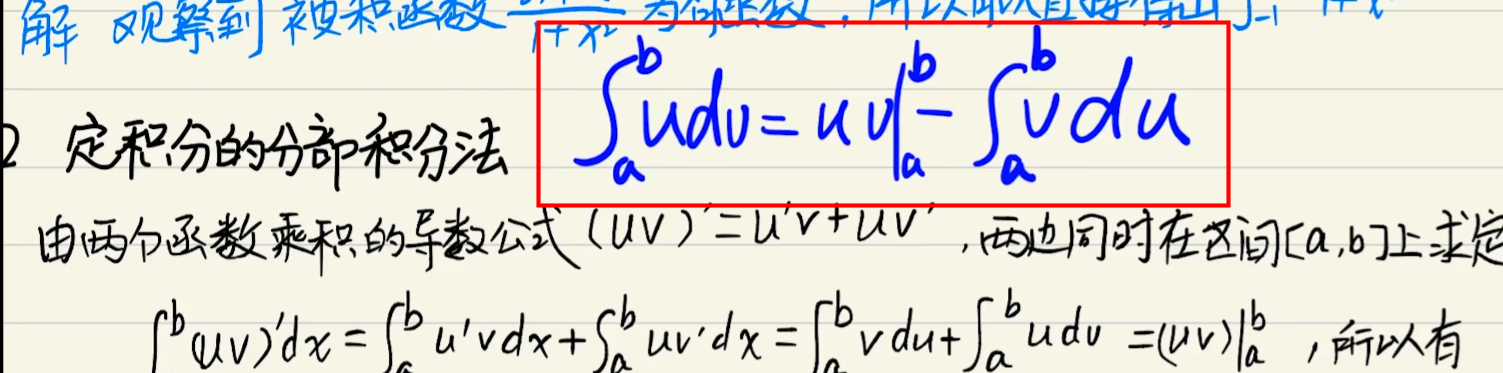 解 观察到 被积函数 为奇函数，所以可以直接得出
∫_a^b u dv = uv|_a^b - ∫_a^b v du
2 定积分的分部积分法
由两个函数乘积的导数公式 (uv)' = u'v + uv' ,两边同时在区间[a,b]上求定
∫^b (uv)'dx = ∫_a^b u'v dx + ∫_a^b uv'dx = ∫_a^b v du + ∫_a^b u dv = (uv)|_a^b ，所以有